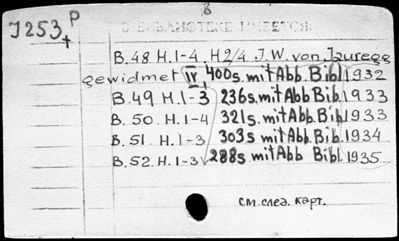 8
J253 P
+
В БИБЛИОТЕКЕ ИМЕЕТСЯ:
B.48 H.1-4, H2/4 J.W. von Jauregg
gewidmet IV, 400s. mit Abb. Bibl. 1932
B.49 H.1-3, 236s. mit Abb Bibl. 1933
B.50 H.1-4 321s. mit Abb. Bibl. 1933
B.51. H.1-3 303s mit Abb. Bibl. 1934
B.52. H.1-3 288s. mit Abb Bibl. 1935
см. след. карт.